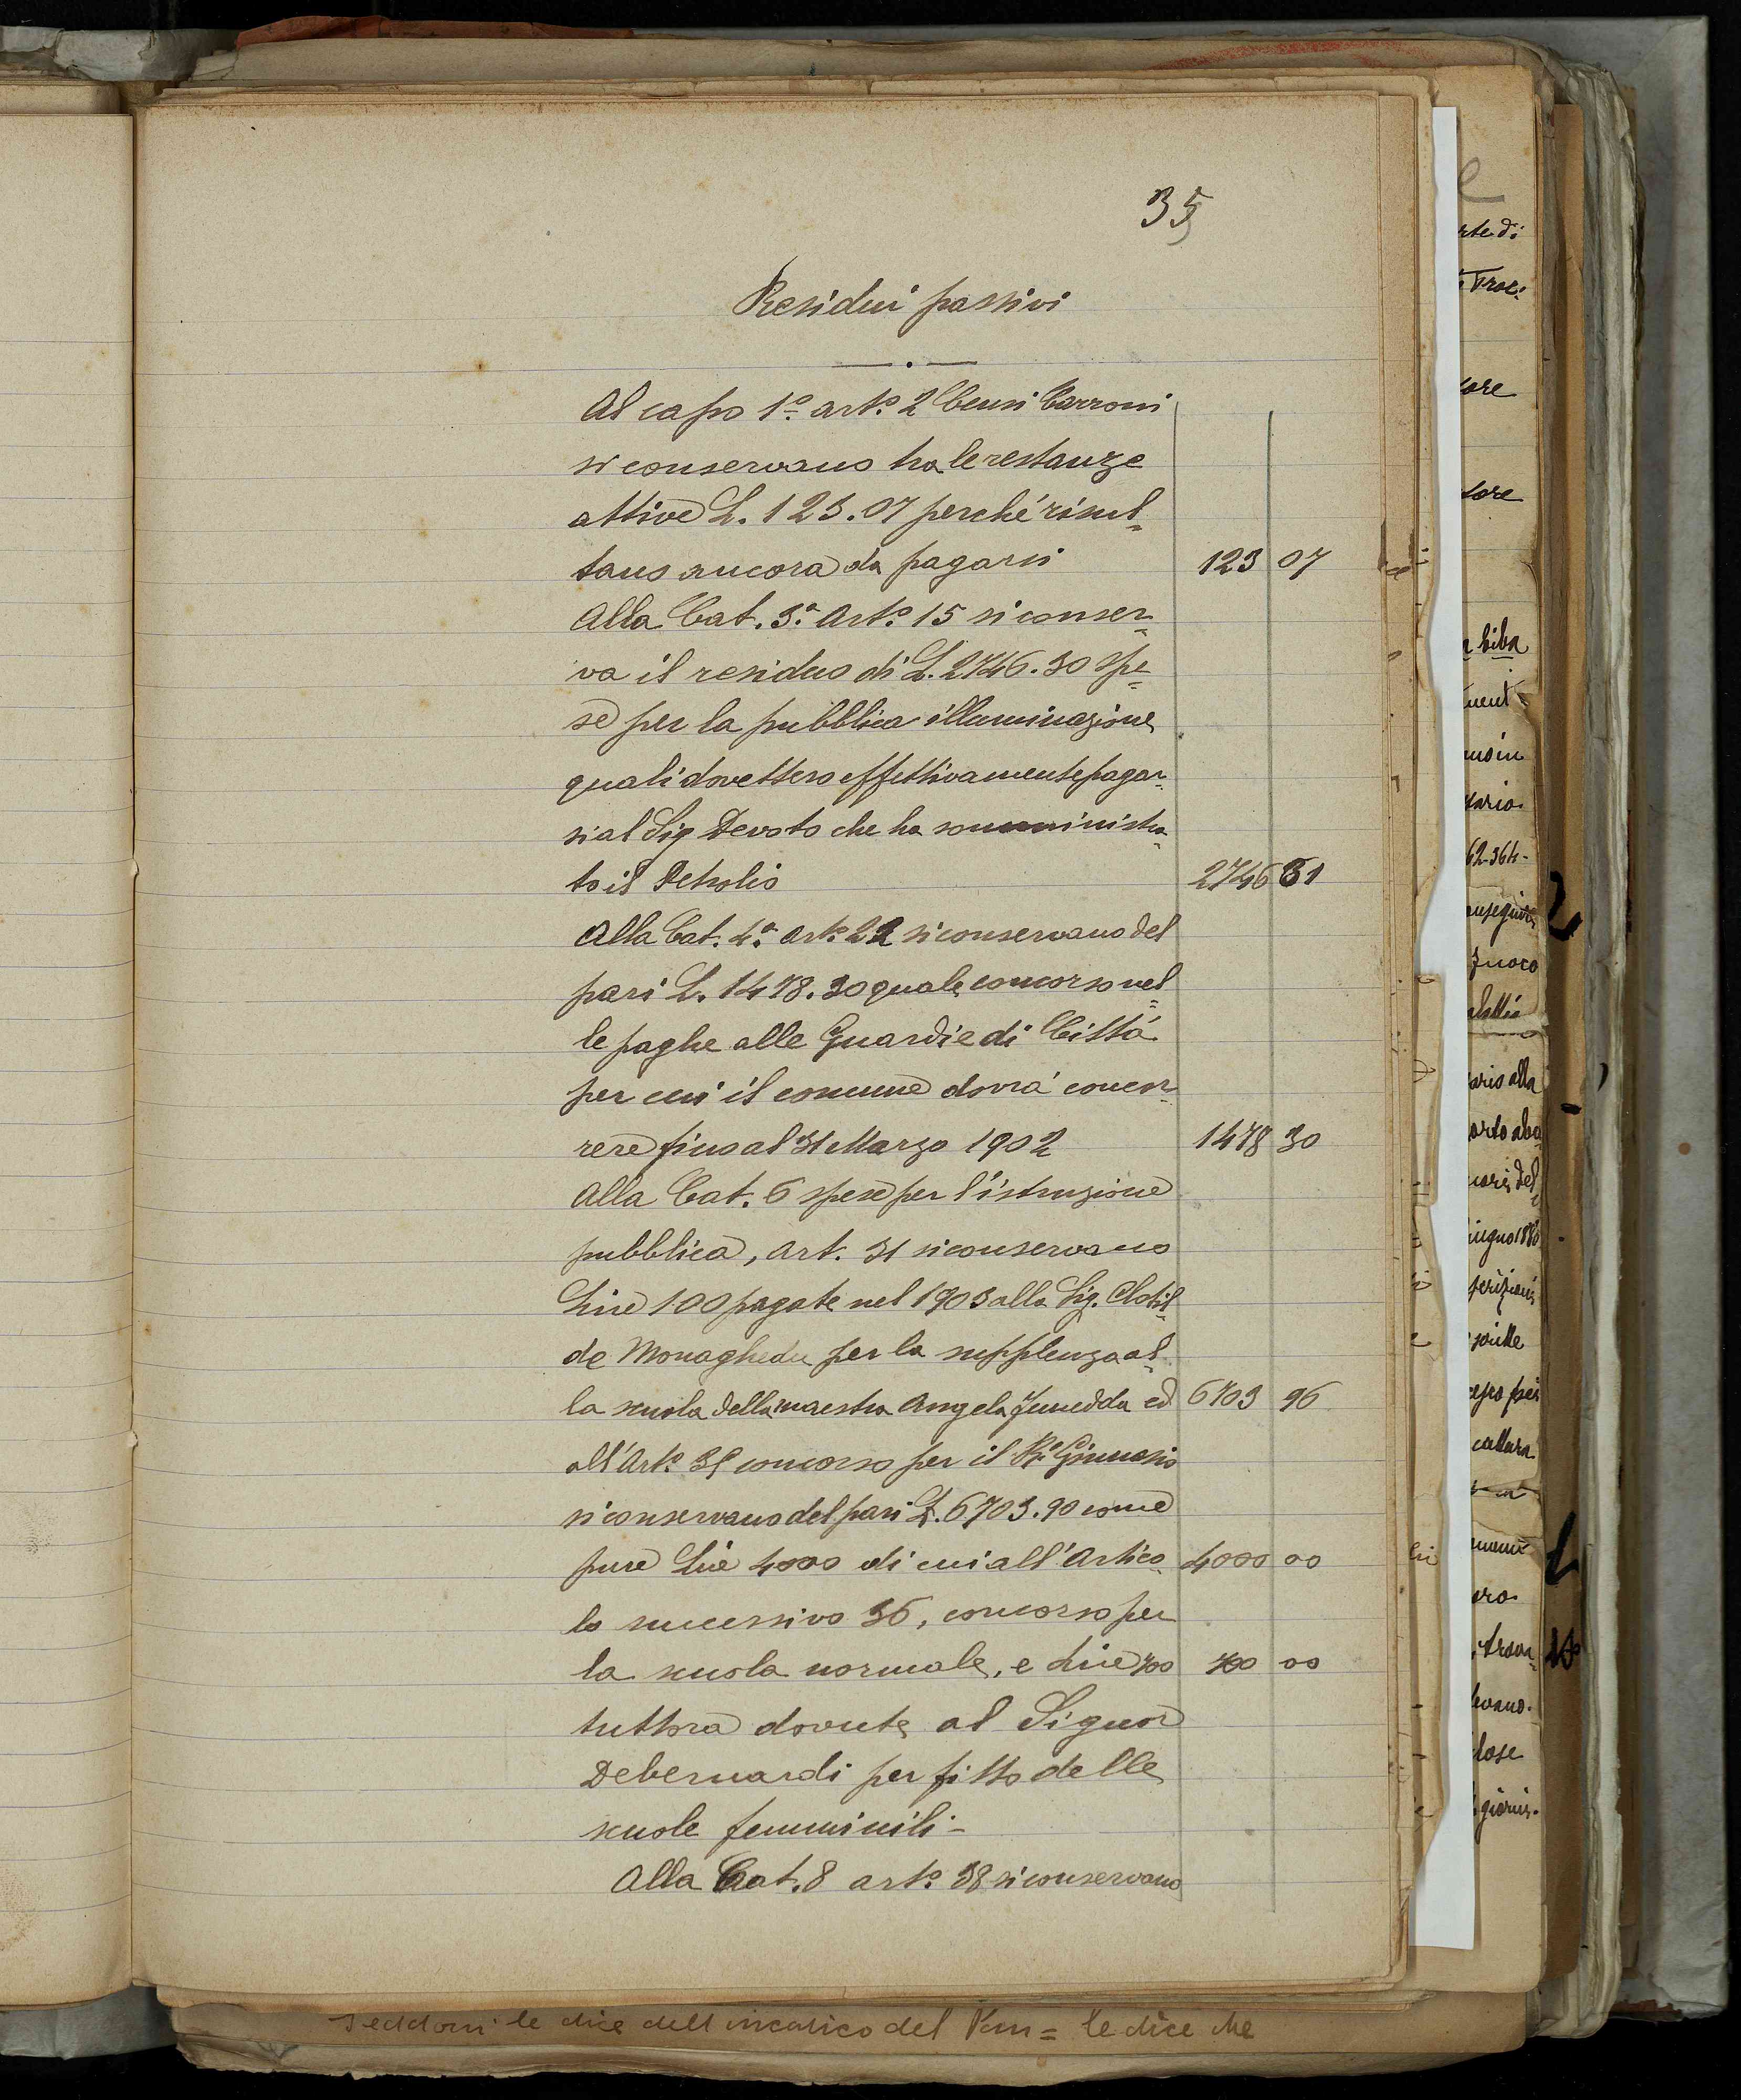 35
Residui passivi
Al capo 1º art.º 2 Censi Carroni
si conservano tra le restanze
attive L. 123.07 perché risul=
tano ancora da pagarsi 123 07
Alla Cat. 3ª Art.º 15 si conser=
va il residuo di L. 2746.30 spe=
se per la pubblica illuminazione
quali dovettero effettivamente pagar=
si al Sig Devoto che ha somministra=
to il Petrolio 2746 31
Alla Cat. 4ª art.º 22 si conservano del
pari L. 1478.30 quale concorso nel=
le paghe alle Guardie di Città
per cui il comune dovrà concor=
rere fino al 31 Marzo 1902 1478 30
Alla Cat. 6 spese per l'istruzione
pubblica, art. 31 si conservano
Lire 100 pagate nel 1903 alla Sig. Clotil=
de Monaghedu per la supplenza al=
la scuola della maestra Angela Funedda ed 6703 96
all'Art.º 35 concorso per il R.º Ginnasio
si conservano del pari L. 6703.90 come
pure Lire 4000 di cui all'Artico= 4000 00
lo successivo 36, concorso per
la scuola normale, e Lire 700 700 00
tuttora dovute al Signor
Debernardi per fitto delle
scuole femminili -
Alla Cat. 8 art.º 38 si conservano
le dice dell incarico del = le dice che
rte di
tore
tore
mario
62-364-
fuoco
ario alla